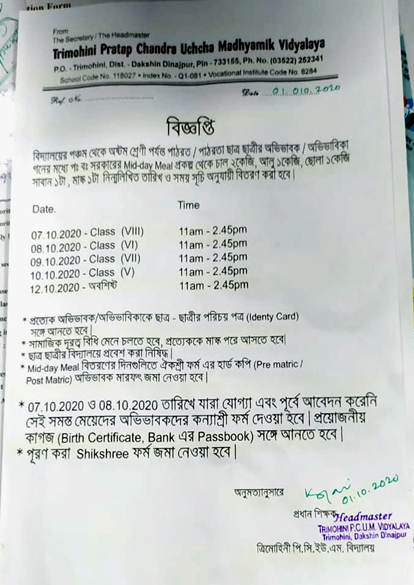 tion Form
From
The Secretary / The Headmaster
Trimohini Pratap Chandra Uchcha Madhyamik Vidyalaya
P.O. - Trimohini, Dist. - Dakshin Dinajpur, Pin - 733155, Ph. No. (03522) 252341
School Code No. 118027 • Index No. - Q1-081 • Vocational Institute Code No. 8284
Ref. No. Date 01.010.2020
বিজ্ঞপ্তি
বিদ্যালয়ের পঞ্চম থেকে অষ্টম শ্রেণী পর্যন্ত পাঠরত / পাঠরতা ছাত্র ছাত্রীর অভিভাবক / অভিভাবিকা
গনের মধ্যে পঃ বঃ সরকারের Mid-day Meal প্রকল্প থেকে চাল ২কেজি, আলু ১কেজি, ছোলা ১কেজি
সাবান ১টা , মাস্ক ১টা নিন্মলিখিত তারিখ ও সময় সূচি অনুযায়ী বিতরণ করা হবে |
Date. Time
07.10.2020 - Class (VIII) 11am - 2.45pm
08.10.2020 - Class (VI) 11am - 2.45pm
09.10.2020 - Class (VII) 11am - 2.45pm
10.10.2020 - Class (V) 11am - 2.45pm
12.10.2020 - অবশিষ্ট 11am - 2.45pm
* প্রত্যেক অভিভাবক/অভিভাবিকাকে ছাত্র - ছাত্রীর পরিচয় পত্র (Identy Card)
সঙ্গে আনতে হবে |
* সামাজিক দূরত্ব বিধি মেনে চলতে হবে, প্রত্যেককে মাস্ক পরে আসতে হবে|
* ছাত্র ছাত্রীর বিদ্যালয়ে প্রবেশ করা নিষিদ্ধ |
* Mid-day Meal বিতরণের দিনগুলিতে ঐকশ্রী ফর্ম এর হার্ড কপি (Pre matric /
Post Matric) অভিভাবক মারফৎ জমা নেওয়া হবে |
* 07.10.2020 ও 08.10.2020 তারিখে যারা যোগ্যা এবং পূর্বে আবেদন করেনি
সেই সমস্ত মেয়েদের অভিভাবকদের কন্যাশ্রী ফর্ম দেওয়া হবে | প্রয়োজনীয়
কাগজ (Birth Certificate, Bank এর Passbook) সঙ্গে আনতে হবে |
* পূরণ করা Shikshree ফর্ম জমা নেওয়া হবে |
অনুমত্যানুসারে
01.10.2020
প্রধান শিক্ষক
Headmaster
TRIMOHINI P.C.U.M. VIDYALAYA
Trimohini, Dakshin Dinajpur
ত্রিমোহিনী পি.সি.ইউ.এম. বিদ্যালয়